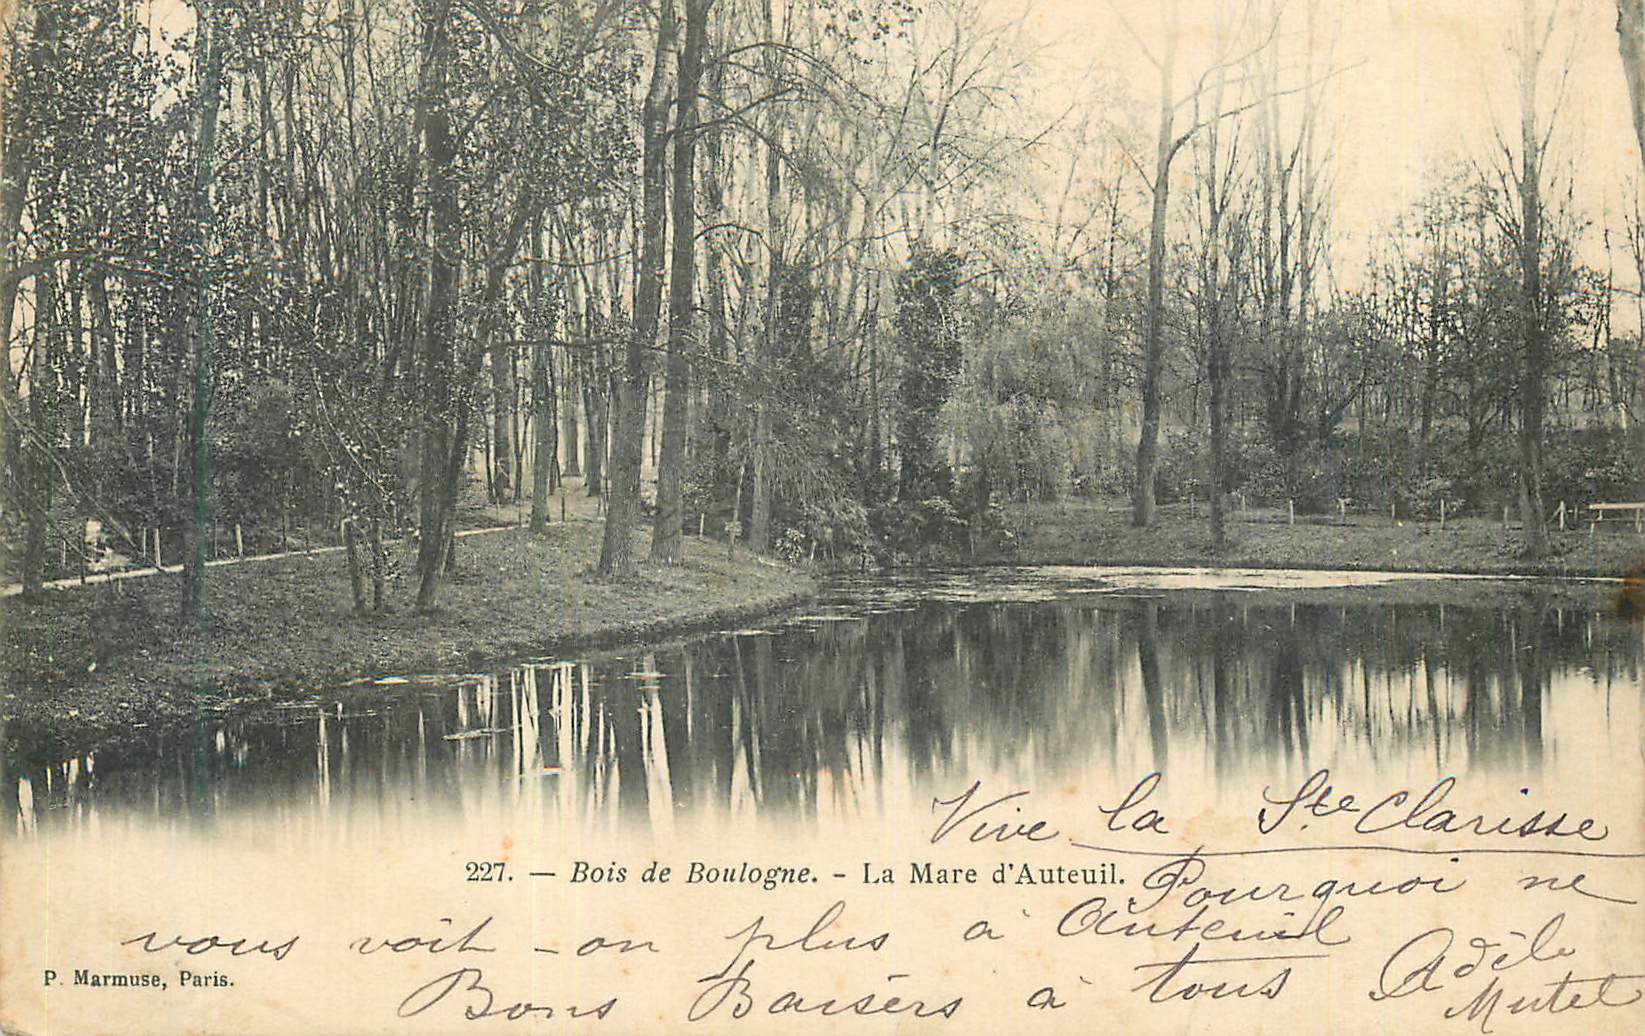 Vive la Ste Clarisse
227. — Bois de Boulogne. - La Mare d'Auteuil.
Pourquoi ne
vous voit-on plus à Auteuil
Bons Baisérs à tous
Adèle
Mutel
P. Marmuse, Paris.